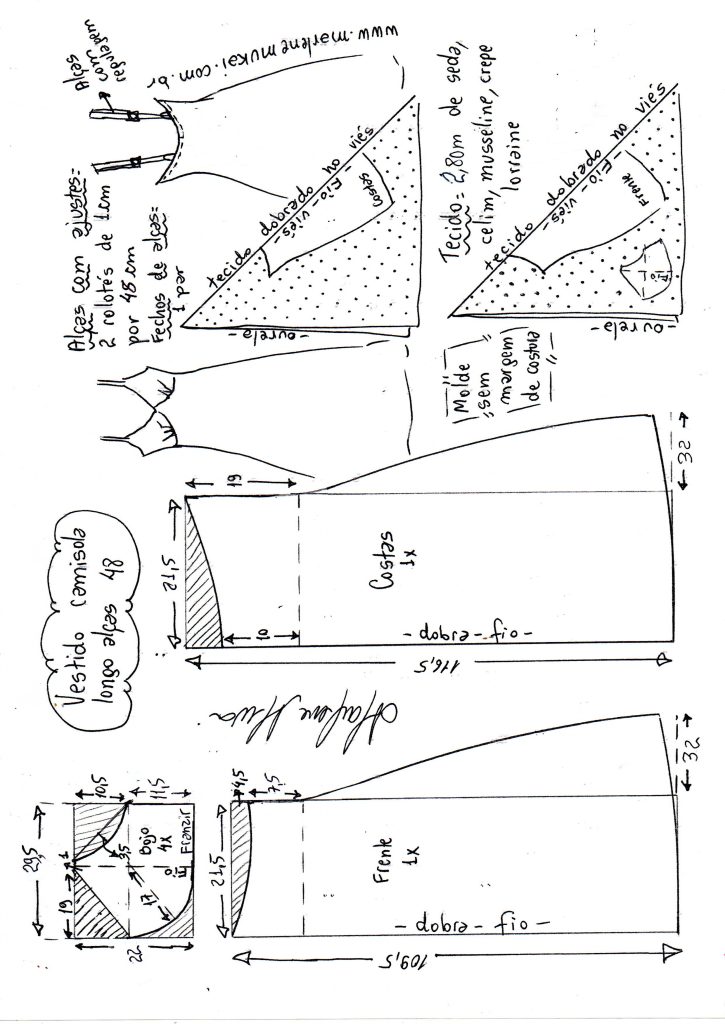 Vestido camisola
longo alças 48
Alças com ajustes=
2 rolotés de 1cm
por 48 cm
Fechos de alças=
1 par
Alças
com
regulagem
www.marlenemukai.com.br
tecido dobrado no viés
Fio-viés-
Costas
-ourela-
Tecido= 2,80m de seda,
celim, musseline, crepe
lorraine
tecido dobrado no viés
Fio-viés-
Frente
Fio
-ourela-
Molde
sem
margem
de costura
21,5
19
10
Costas
1x
-dobra-fio-
116,5
32
29,5
19
1
10,5
11,5
3,5
17
22
Bojo
4x
Fio
Franzir
21,5
4,5
7,5
Frente
1x
-dobra-fio-
109,5
32